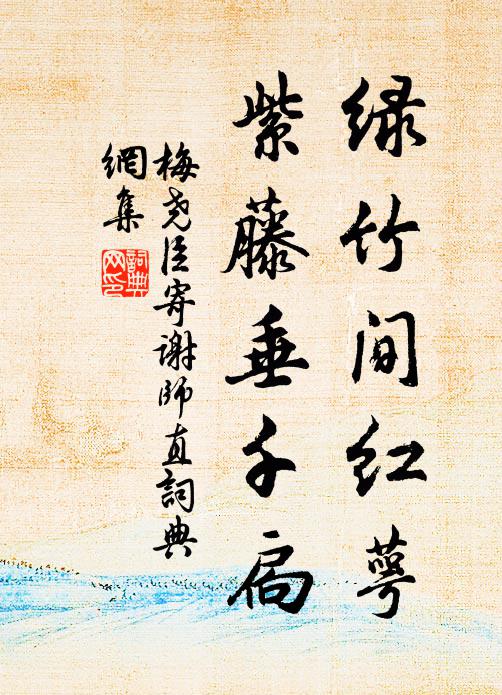 绿竹间红萼
紫藤垂千扃
梅尧臣寄谢师直词典
網集
詞典
网印